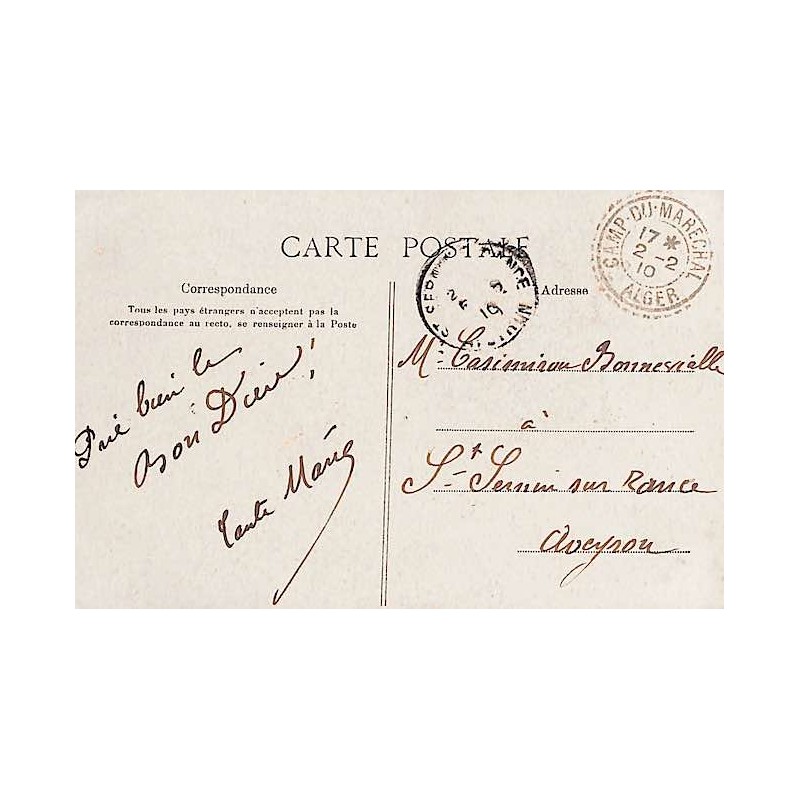 CARTE POSTALE
Correspondance
Tous les pays étrangers n'acceptent pas la
correspondance au recto, se renseigner à la Poste
Prie bien le
Bon Dieu!
Tante Marie
Adresse
CAMP-DU-MARECHAL
17 *
2 -2
10
ALGER
Casimirou Bonnevialle
à
St Sernin sur Rance
Aveyron